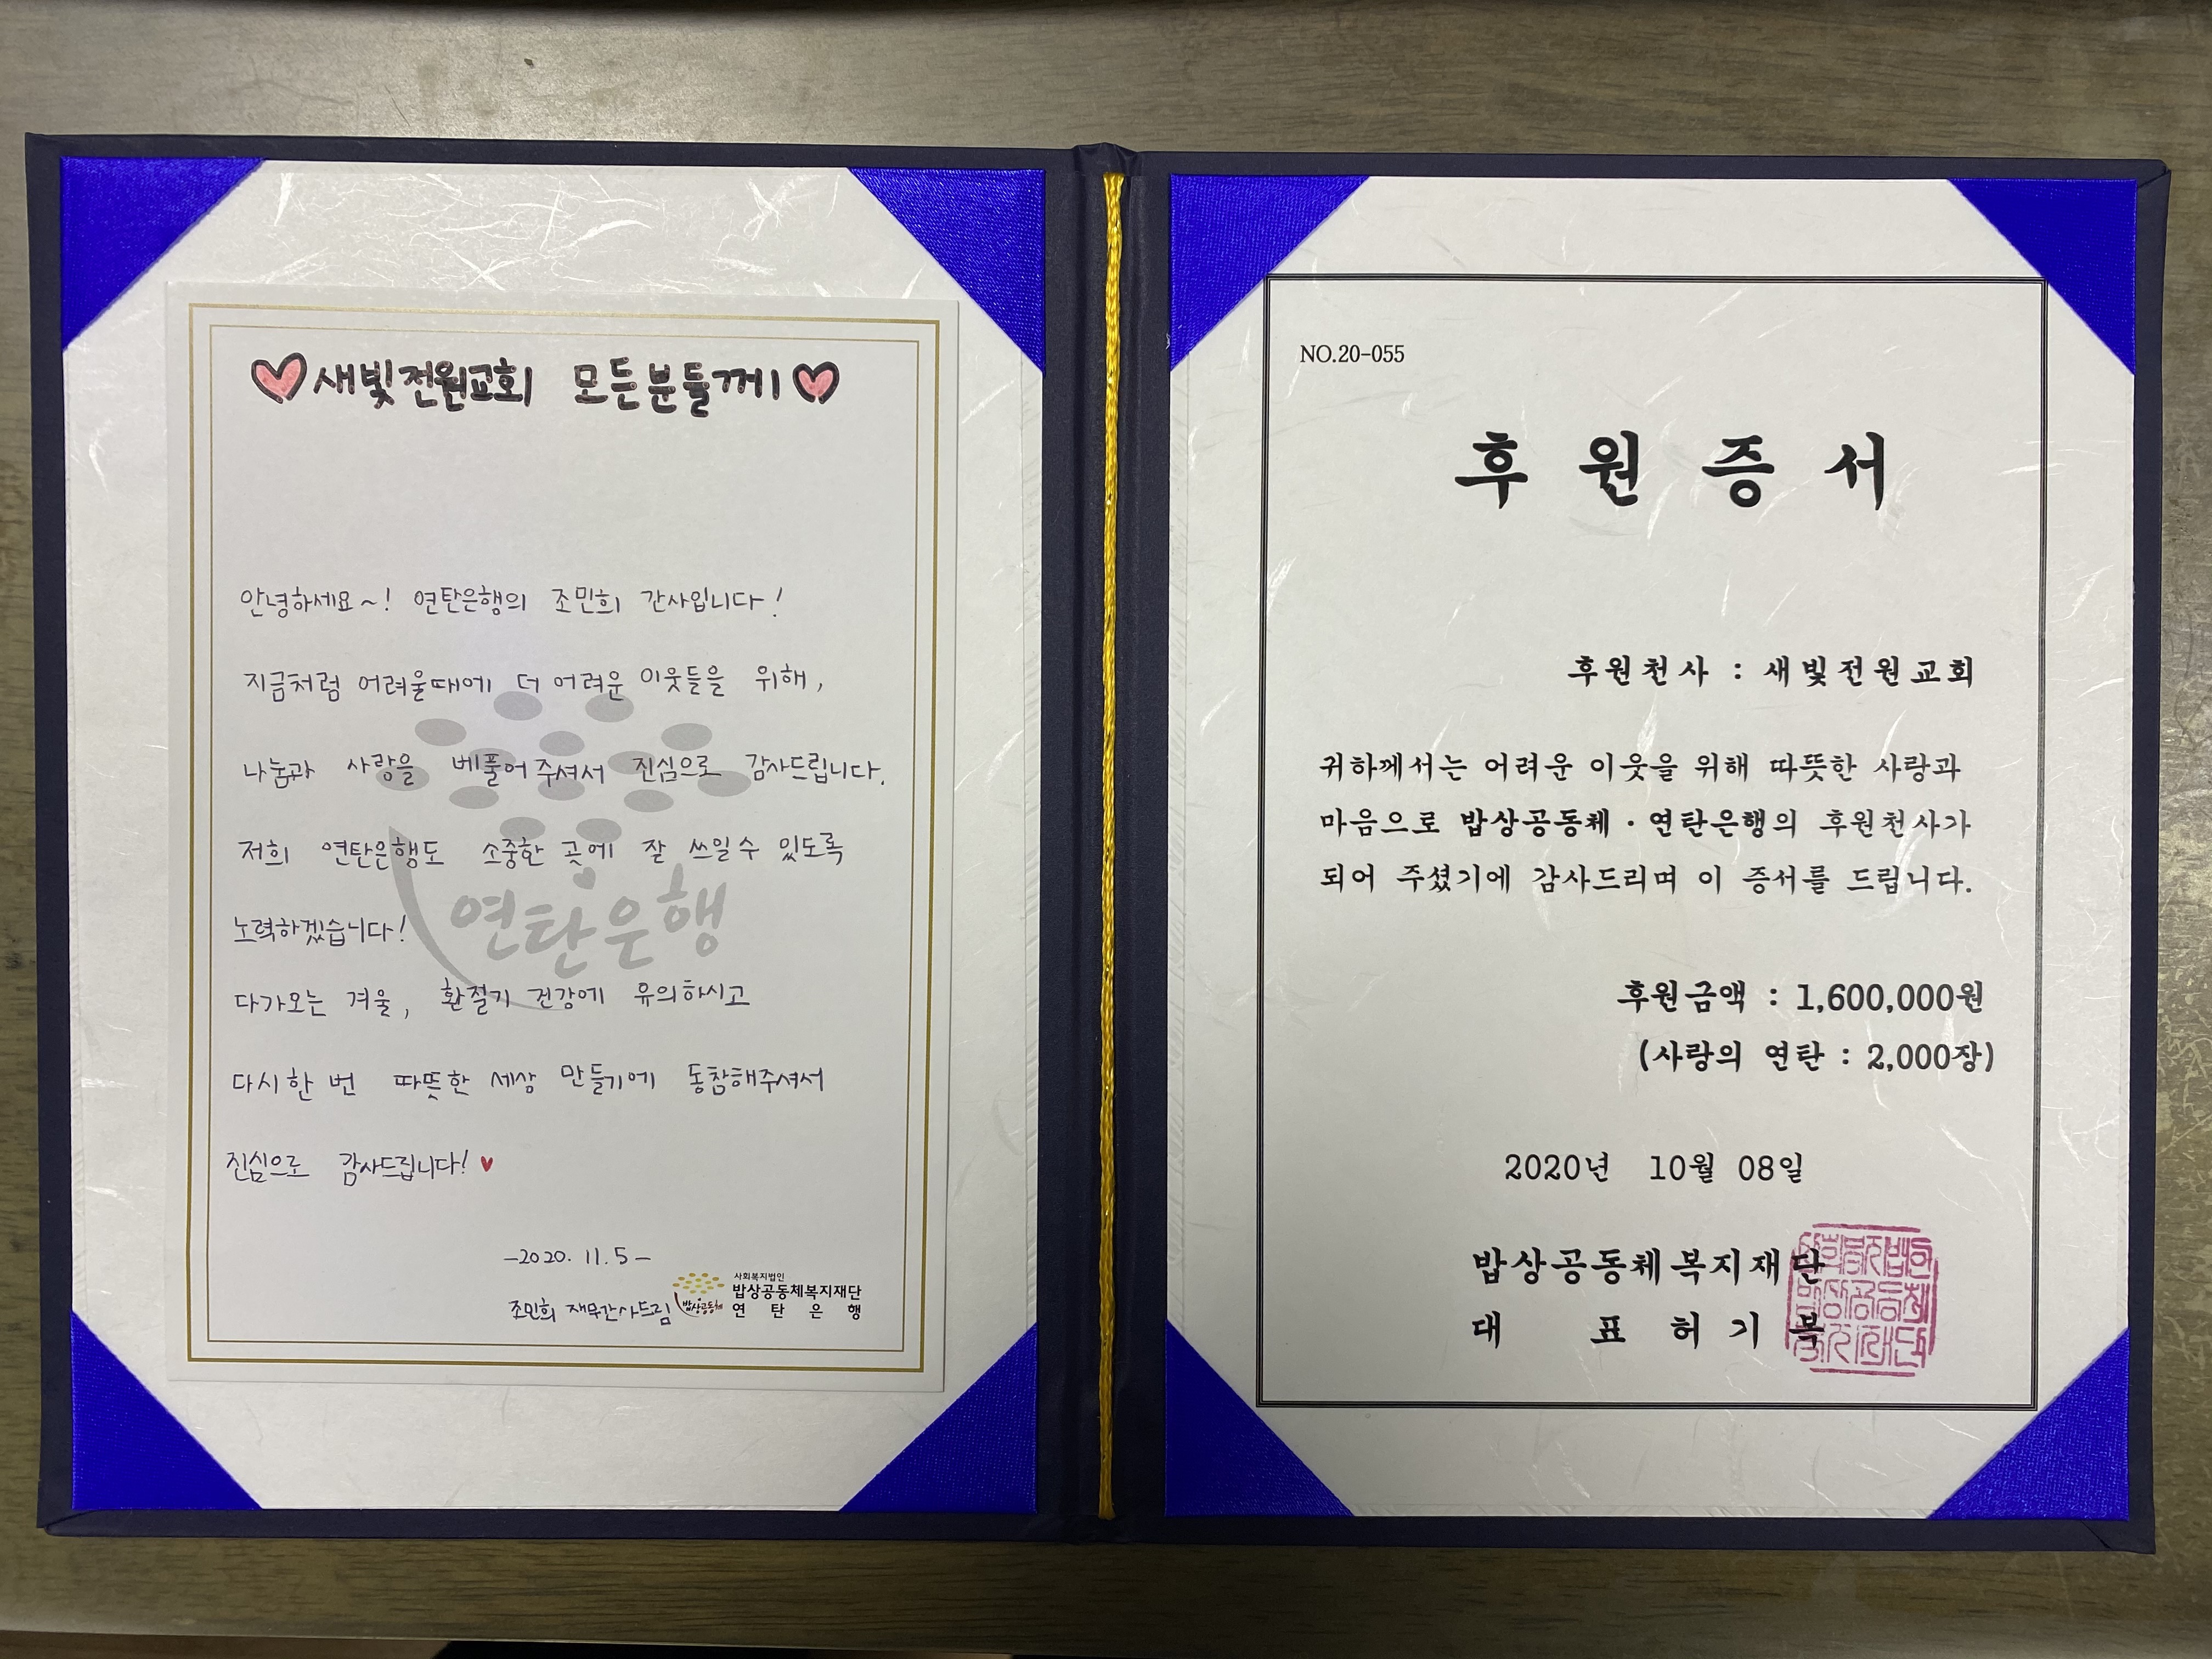 새빛전원교회 모든분들께
안녕하세요~! 연탄은행의 조민희 간사입니다!
지금처럼 어려울때에 더 어려운 이웃들을 위해,
나눔과 사랑을 베풀어 주셔서 진심으로 감사드립니다.
저희 연탄은행도 소중한 곳에 잘 쓰일수 있도록
연탄은행
노력하겠습니다!
다가오는 겨울, 환절기 건강에 유의하시고
다시한번 따뜻한 세상 만들기에 동참해주셔서
진심으로 감사드립니다!
-2020. 11. 5-
조민희 재무간사드림
밥상공동체
사회복지법인
밥상공동체복지재단
연탄은행
NO.20-055
후원증서
후원천사 : 새빛전원교회
귀하께서는 어려운 이웃을 위해 따뜻한 사랑과
마음으로 밥상공동체·연탄은행의 후원천사가
되어 주셨기에 감사드리며 이 증서를 드립니다.
후원금액 : 1,600,000원
(사랑의 연탄 : 2,000장)
2020년 10월 08일
밥상공동체복지재단
대 표 허 기 복